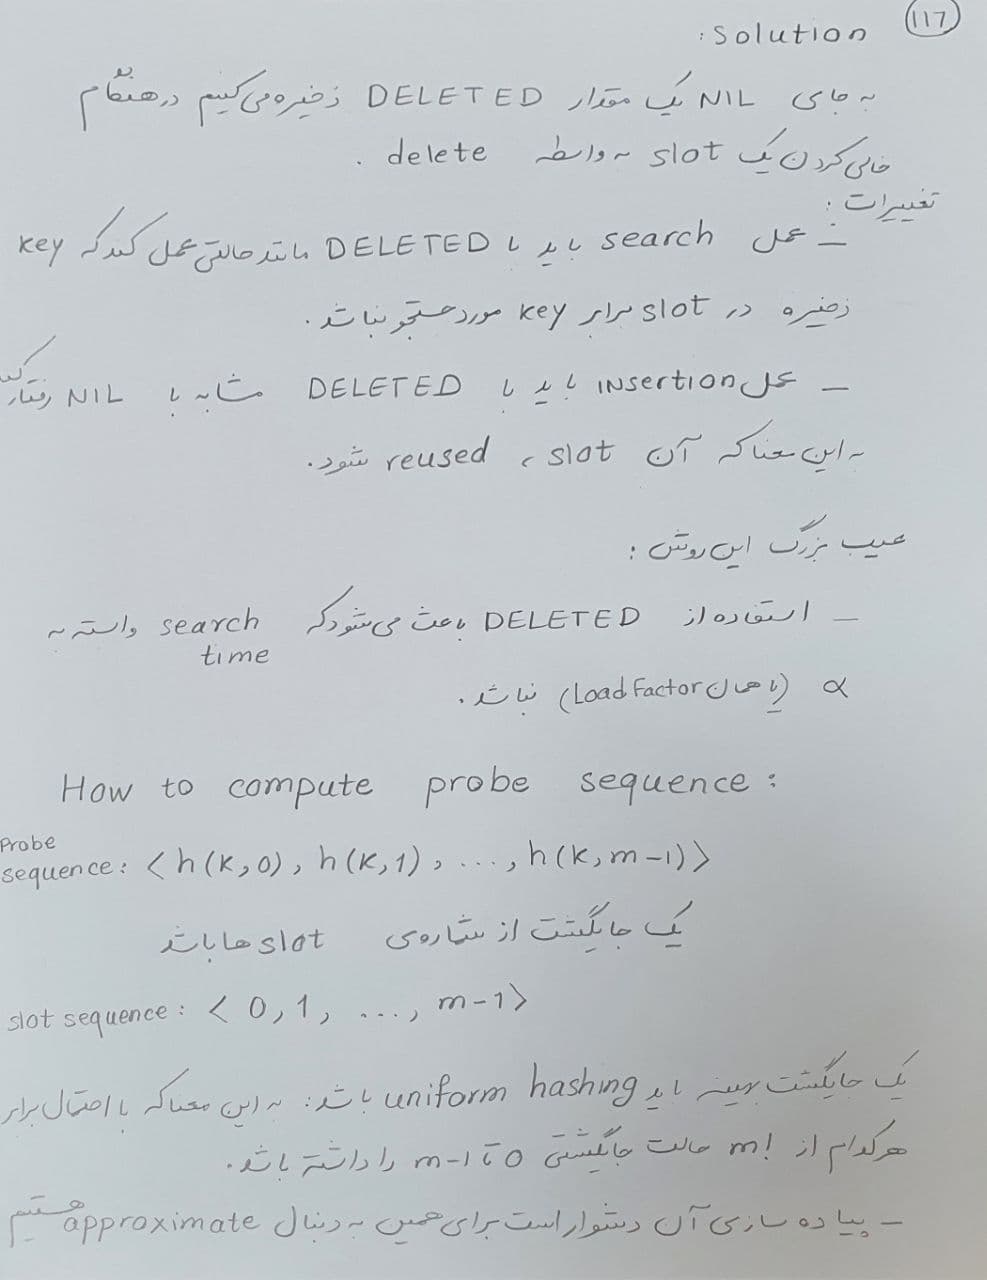 117
Solution:
به جای NIL یک مقدار DELETED ذخیره می‌کنیم در هنگام
خالی کردن یک slot به واسطه delete .
تغییرات:
– عمل search باید با DELETED مانند حالتی عمل کند که key
ذخیره در slot برابر key مورد جستجو نباشد.
– عمل insertion باید با DELETED مشابه با NIL رفتار کند
به این معنا که آن slot ، reused شود.
عیب بزرگ این روش:
– استفاده از DELETED باعث می‌شود که search time وابسته به
α (یا همان Load Factor) نباشد.
How to compute probe sequence:
Probe sequence: <h(k,0), h(k,1), ..., h(k,m-1)>
یک جایگشت از شماره‌ی slot ها باشد
slot sequence: <0, 1, ..., m-1>
یک جایگشت بهینه باید uniform hashing باشد: به این معنا که با احتمال برابر
هر کدام از m! حالت جایگشتی 0 تا m-1 را داشته باشد.
– پیاده سازی آن دشوار است برای همین به دنبال approximate هستیم